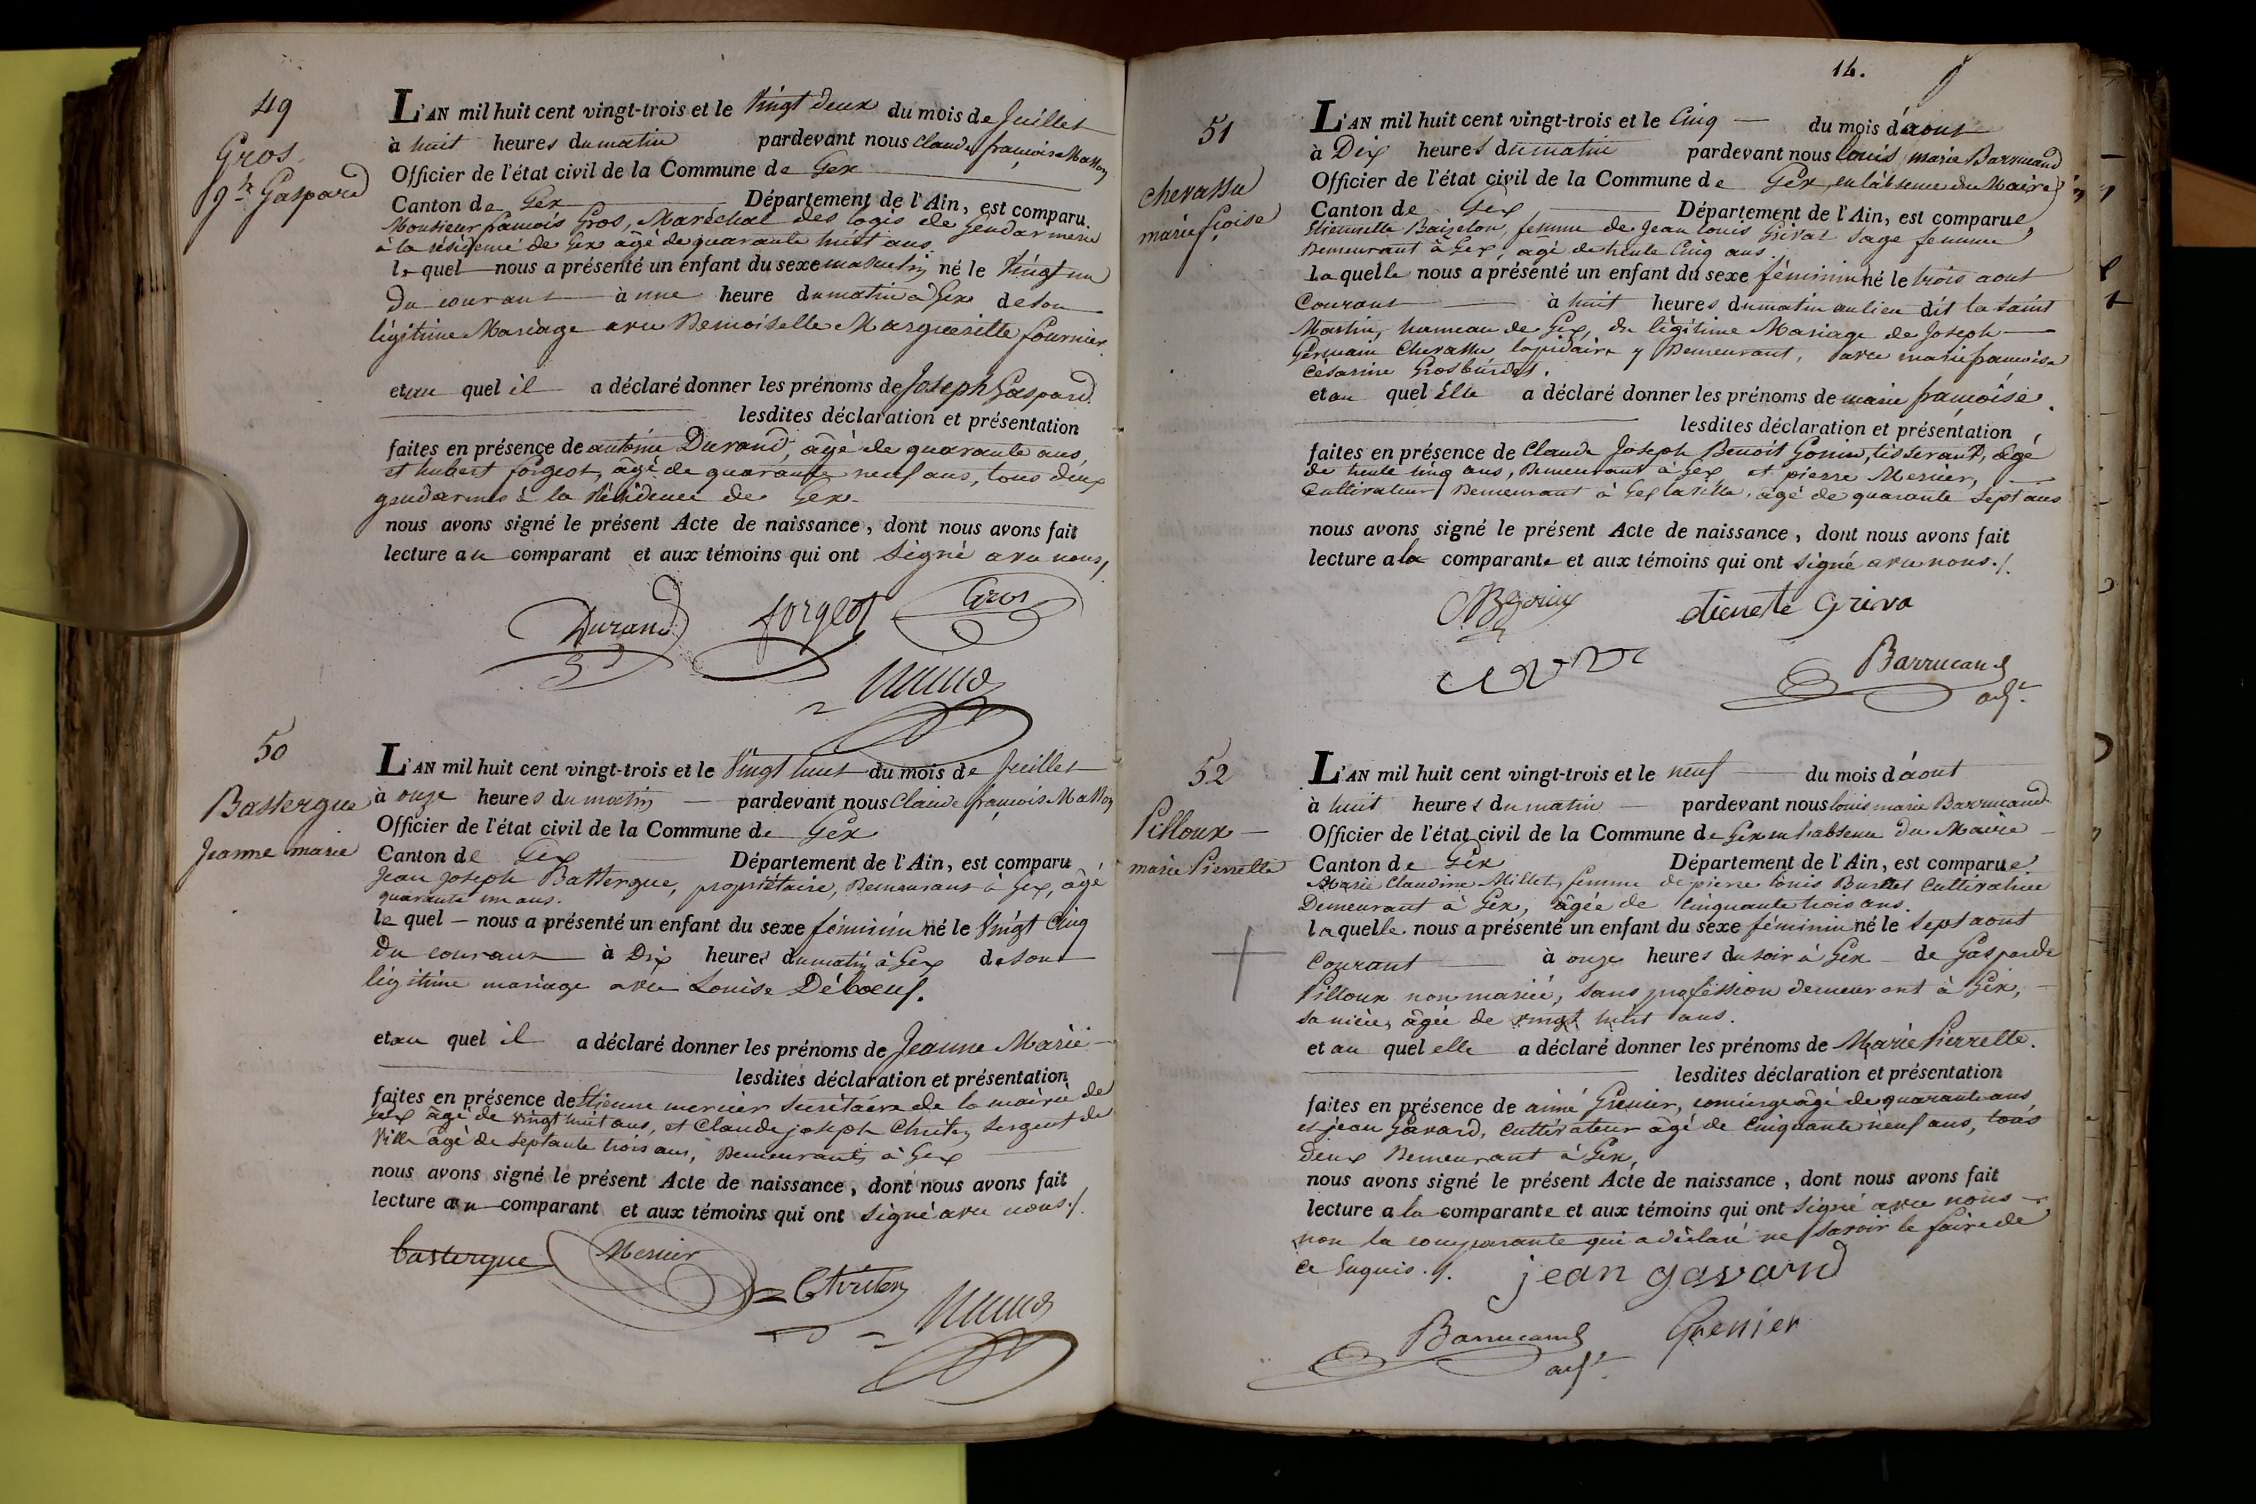 49
Gros
Jh Gaspard
L'AN mil huit cent vingt-trois et le Vingt deux du mois de Juillet
à huit heures du matin pardevant nous Claude françois Masson
Officier de l'état civil de la Commune de Gex
Canton de Gex Département de l'Ain, est comparu
Monsieur françois Gros, Maréchal des logis de Gendarmerie
à la résidence de Gex âgé de quarante huit ans,
lequel nous a présenté un enfant du sexe masculin né le Vingt un
du courant à une heure du matin à Gex de son
légitime Mariage avec Demoiselle Margueritte fournier
et au quel il a déclaré donner les prénoms de Joseph Gaspard.
lesdites déclaration et présentation
faites en présence de antoine Durand, âgé de quarante ans,
et hubert forgeot, âgé de quarante neuf ans, tous deux
gendarmes à la Résidence de Gex
nous avons signé le présent Acte de naissance, dont nous avons fait
lecture au comparant et aux témoins qui ont signé avec nous /.
Durand forgeot Gros
50
Bastergue
Jeanne marie
L'AN mil huit cent vingt-trois et le Vingt huit du mois de Juillet
à onze heures du matin pardevant nous Claude françois Masson
Officier de l'état civil de la Commune de Gex
Canton de Gex Département de l'Ain, est comparu
Jean Joseph Bastergue, propriétaire, Demeurant à Gex, âgé
quarante un ans.
lequel nous a présenté un enfant du sexe féminin né le Vingt Cinq
du courant à Dix heures du matin à Gex de son
légitime mariage avec Louise Déboeuf.
et au quel il a déclaré donner les prénoms de Jeanne Marie
lesdites déclaration et présentation
faites en présence de Etienne mercier Secrétaire de la mairie de
Gex âgé de vingt huit ans, et Claude joseph Chrites Sergent de
Ville âgé de septante trois ans, Demeurants à Gex
nous avons signé le présent Acte de naissance, dont nous avons fait
lecture au comparant et aux témoins qui ont signé avec nous /.
bastergue Mercier
14.
51
chevassu
marie fçoise
L'AN mil huit cent vingt-trois et le Cinq du mois d'aout
à Dix heures du matin pardevant nous louis marie Barrucand
Officier de l'état civil de la Commune de Gex en l'absence du Maire
Canton de Gex Département de l'Ain, est comparue
Etiennette Baizeton, femme de Jean louis Grivat Sage femme
Demeurant à Gex, âgé de trente Cinq ans.
laquelle nous a présenté un enfant du sexe féminin né le trois aout
Courant à huit heures du matin au lieu dit la Saint
Martin, hameau de Gex, du légitime Mariage de Joseph
Germain Chevassu lapidaire y Demeurant, avec marie françoise
Césarine Grosburdet.
et au quel Elle a déclaré donner les prénoms de marie françoise.
lesdites déclaration et présentation
faites en présence de Claude Joseph Benoit Gonin, tisserant, âgé
de trente cinq ans, Demeurant à Gex et pierre Mercier,
Cultivateur Demeurant à Gex la ville, âgé de quarante Sept ans
nous avons signé le présent Acte de naissance, dont nous avons fait
lecture a la comparante et aux témoins qui ont signé avec nous /.
tienete Griva
Barrucand
adjt
52
Pilloux
marie Pierrette
L'AN mil huit cent vingt-trois et le neuf du mois d'aout
à huit heures du matin pardevant nous louis marie Barrucand
Officier de l'état civil de la Commune de Gex en l'absence du Maire
Canton de Gex Département de l'Ain, est comparue
Marie Claudine Millet, femme de pierre louis Burdet Cultivatrice
Demeurant à Gex, âgée de Cinquante trois ans.
laquelle nous a présenté un enfant du sexe féminin né le Sept aout
Courant à onze heures du soir à Gex de Gasparde
Pilloux non mariée, sans profession demeurant à Gex,
sa nièce, âgée de vingt huit ans.
et au quel elle a déclaré donner les prénoms de Marie Pierrette.
lesdites déclaration et présentation
faites en présence de aimé Grenier, concierge âgé de quarante ans,
et jean Gavard, Cultivateur âgé de Cinquante neuf ans, tous
deux Demeurant à Gex,
nous avons signé le présent Acte de naissance, dont nous avons fait
lecture a la comparante et aux témoins qui ont signé avec nous
non la comparante qui a déclaré ne savoir le faire de
ce Enquis /.
jean gavard
Barrucand Grenier
adjt